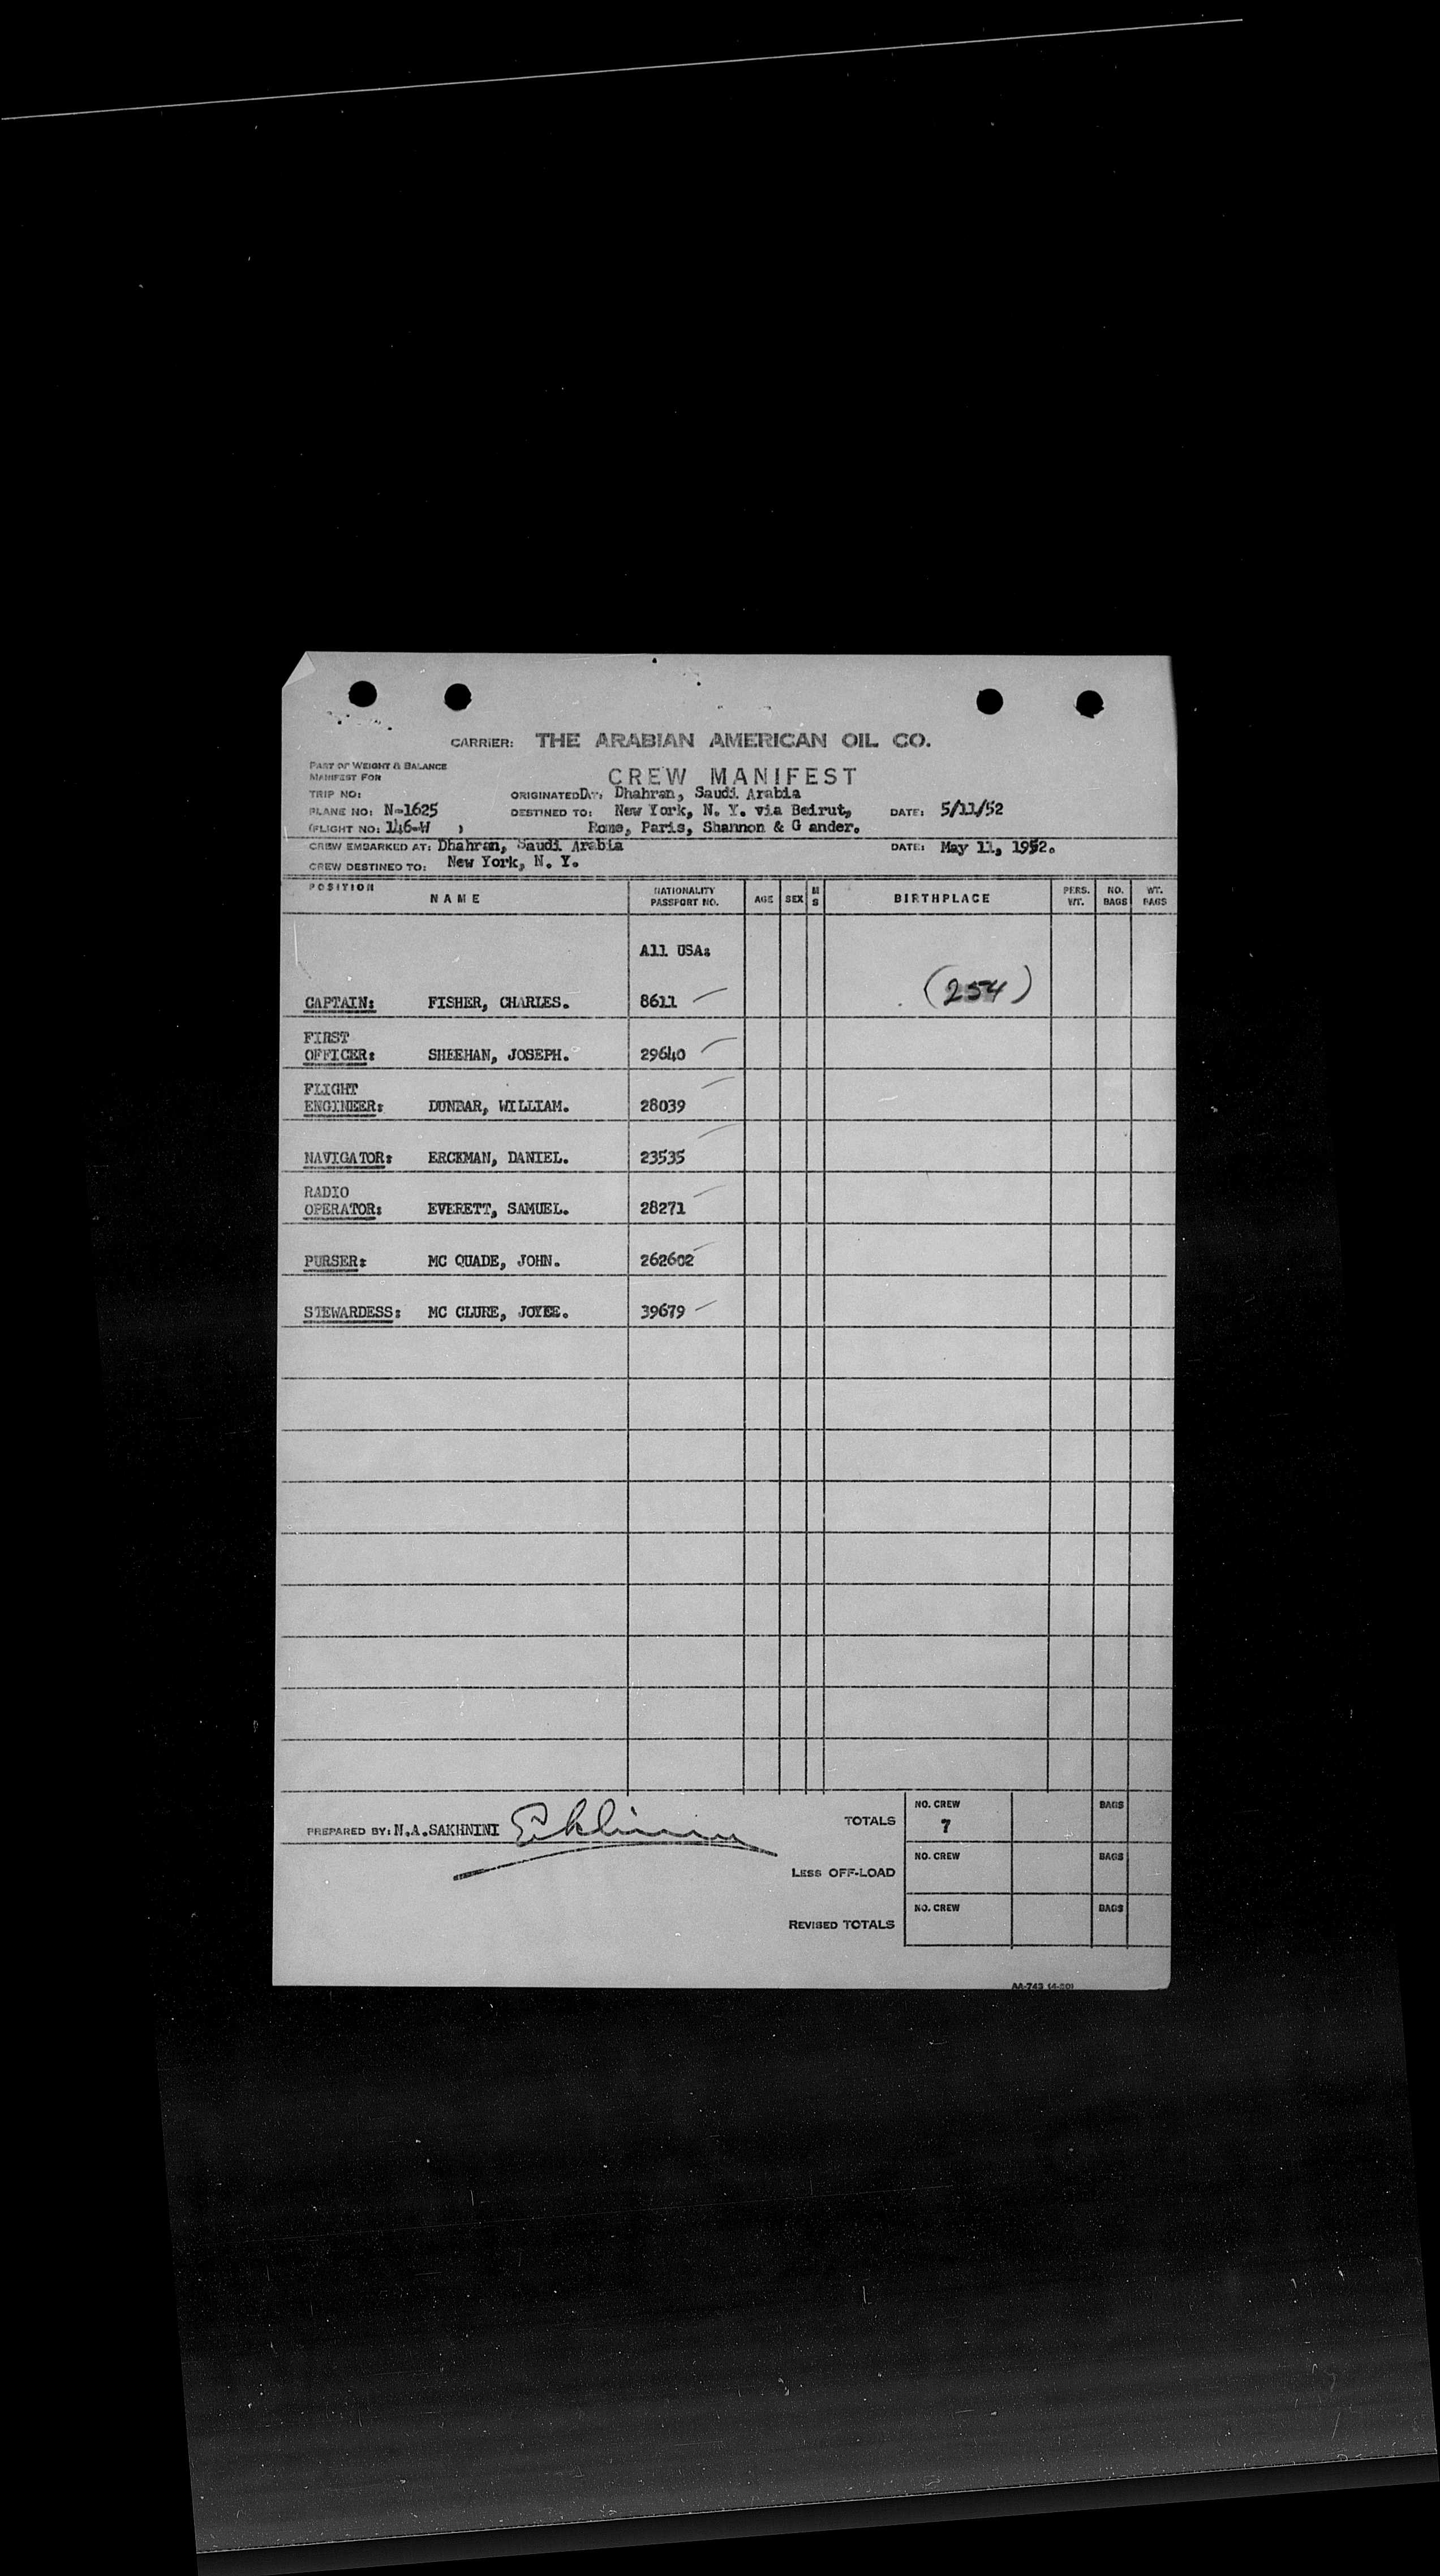 CARRIER: THE ARABIAN AMERICAN OIL CO.
PART OF WEIGHT & BALANCE
MANIFEST FOR
CREW MANIFEST
TRIP NO: ORIGINATED Dhahran, Saudi Arabia
PLANE NO: N-1625 DESTINED TO: New York, N. Y. via Beirut, DATE: 5/11/52
(FLIGHT NO: 146-W ) Rome, Paris, Shannon & G ander.
CREW EMBARKED AT: Dhahran, Saudi Arabia DATE: May 11, 1952.
CREW DESTINED TO: New York, N. Y.
POSITION NAME NATIONALITY PASSPORT NO. AGE SEX M S BIRTHPLACE PERS. WT. NO. BAGS WT. BAGS
All USA:
(254)
CAPTAIN: FISHER, CHARLES. 8611
FIRST
OFFICER: SHEEHAN, JOSEPH. 29640
FLIGHT
ENGINEER: DUNBAR, WILLIAM. 28039
NAVIGATOR: ERCKMAN, DANIEL. 23535
RADIO
OPERATOR: EVERETT, SAMUEL. 28271
PURSER: MC QUADE, JOHN. 262602
STEWARDESS: MC CLURE, JOYEE. 39679
NO. CREW BAGS
PREPARED BY: N.A.SAKHNINI TOTALS 7
NO. CREW BAGS
LESS OFF-LOAD
NO. CREW BAGS
REVISED TOTALS
AA-743 (4-50)